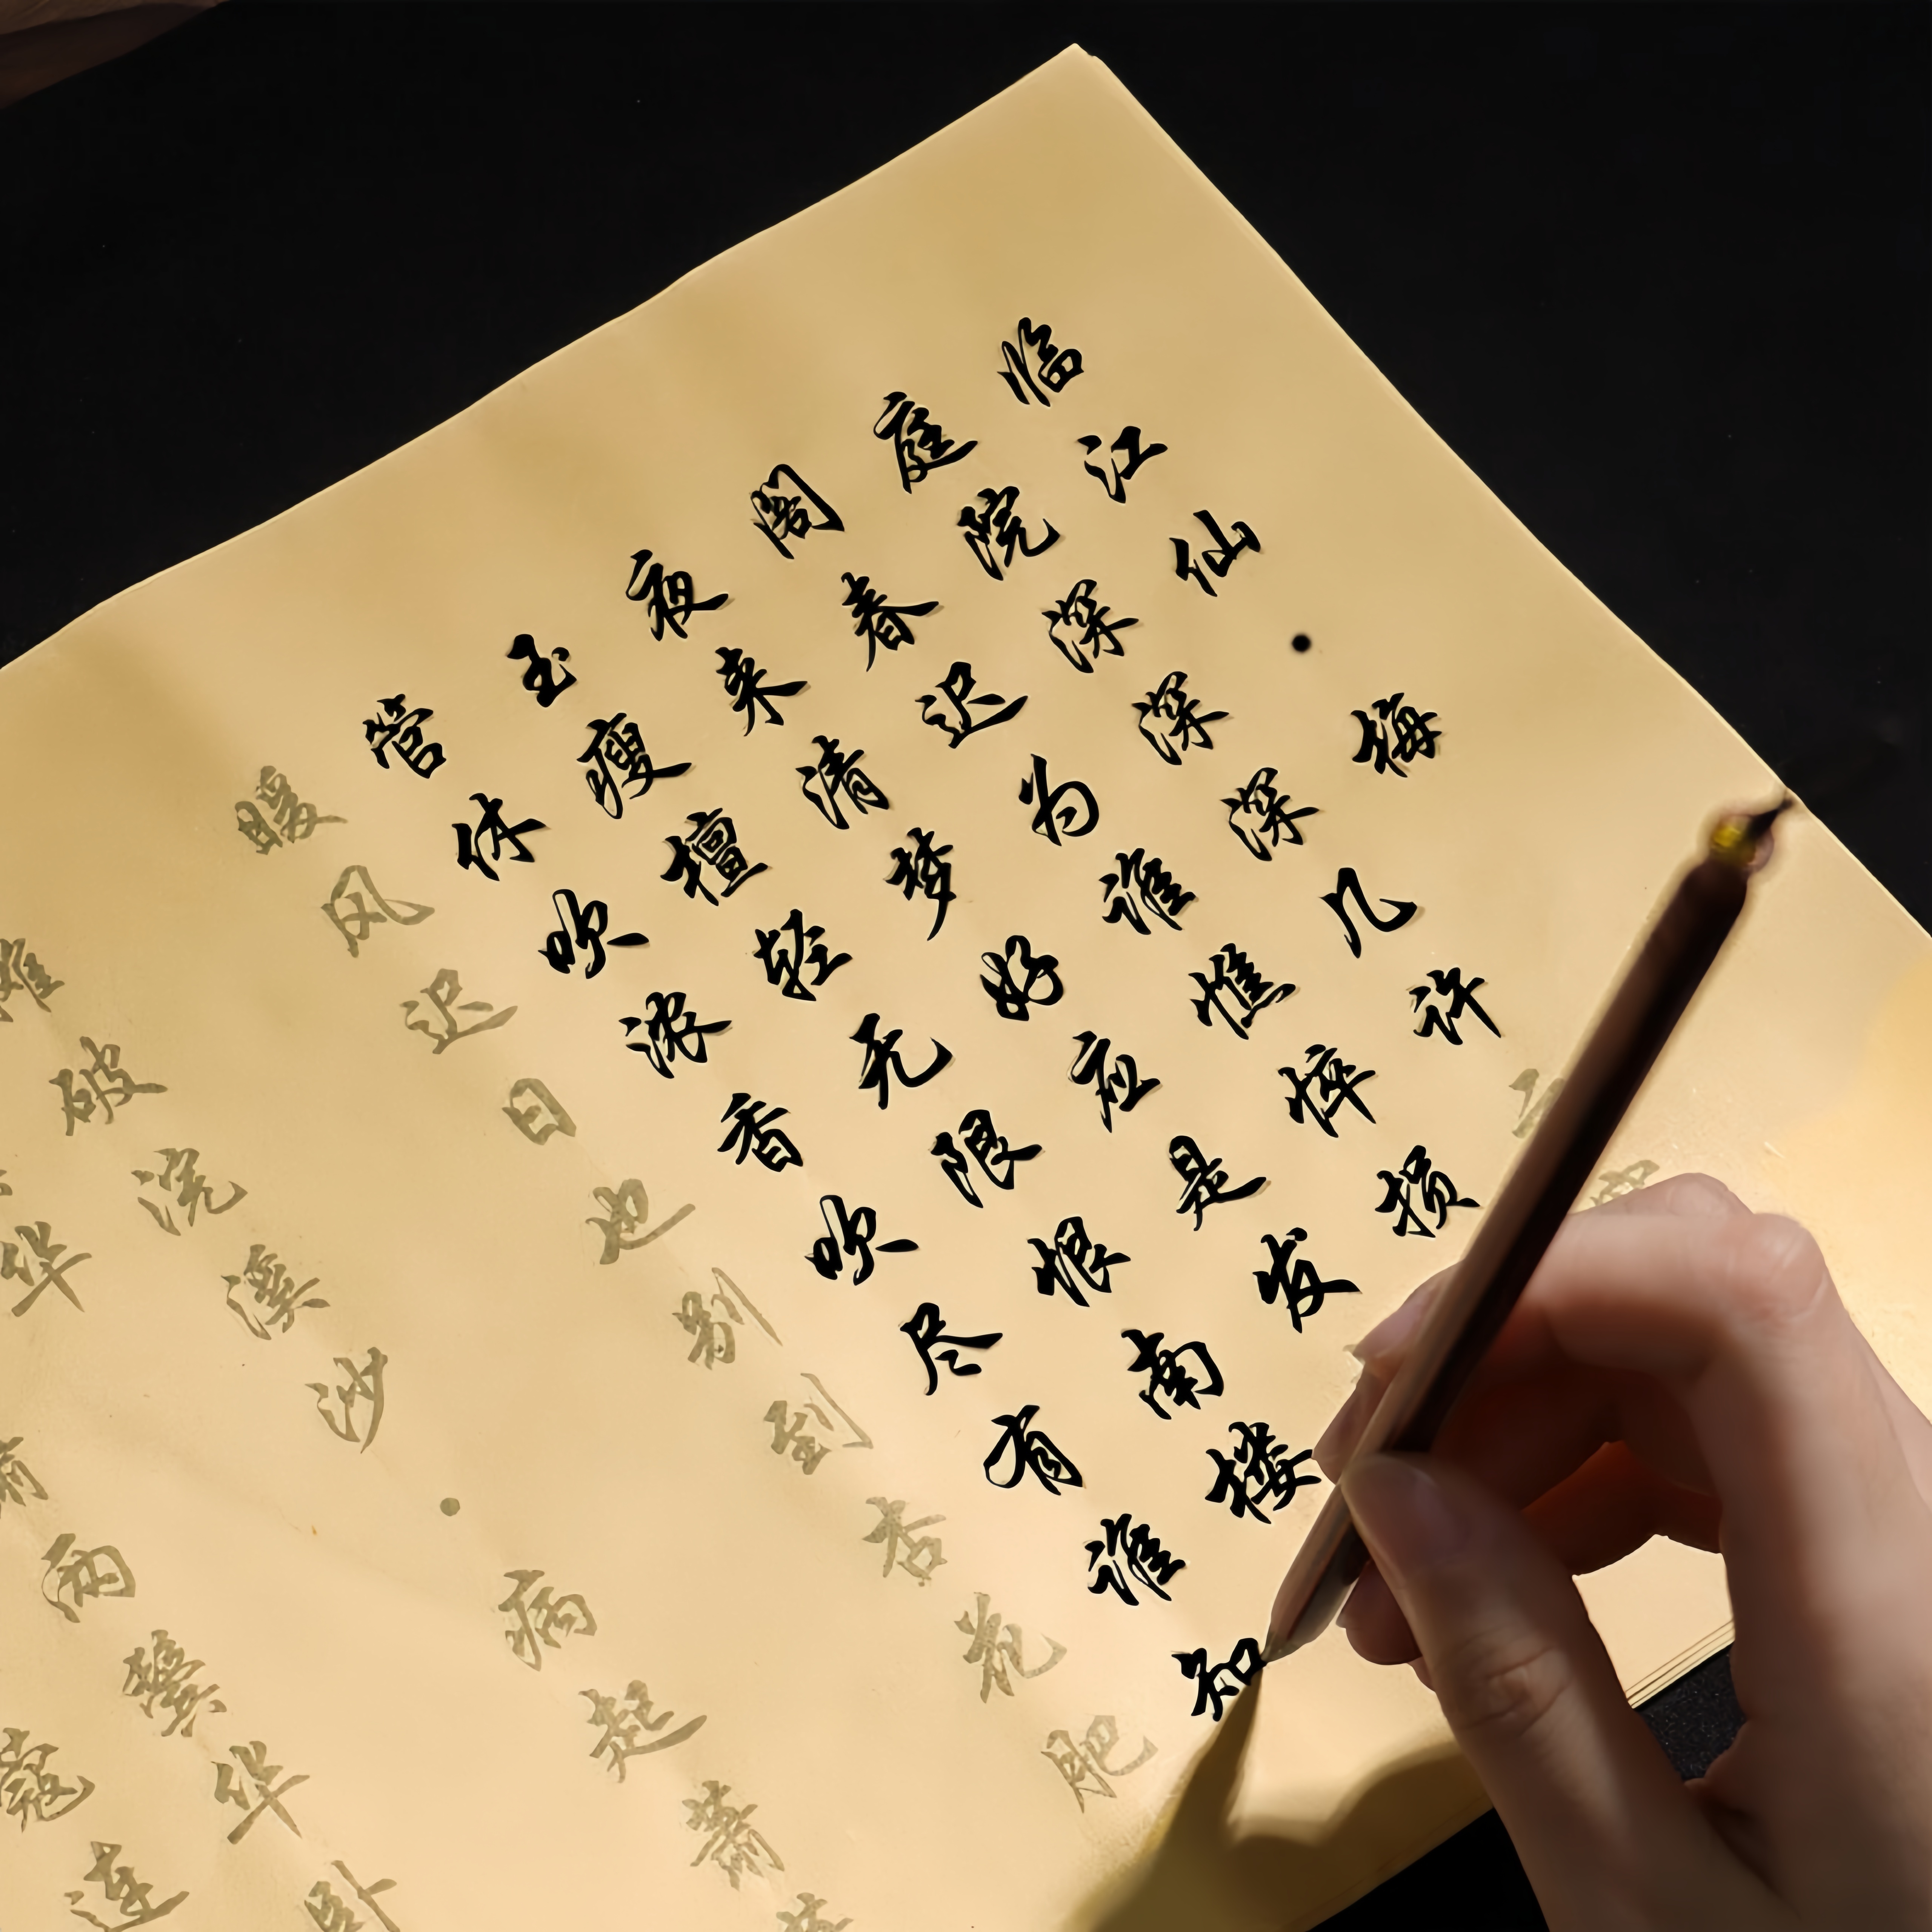 临江仙·梅
庭院深深深几许
阁春迟为谁憔悴损
夜来清梦好应是发
玉瘦檀轻无限恨南楼
管休吹浓香吹尽有谁知
暖风迟日也别到杏花肥
摊破浣溪沙·病起萧
华
萧两鬓华卧
蔻连